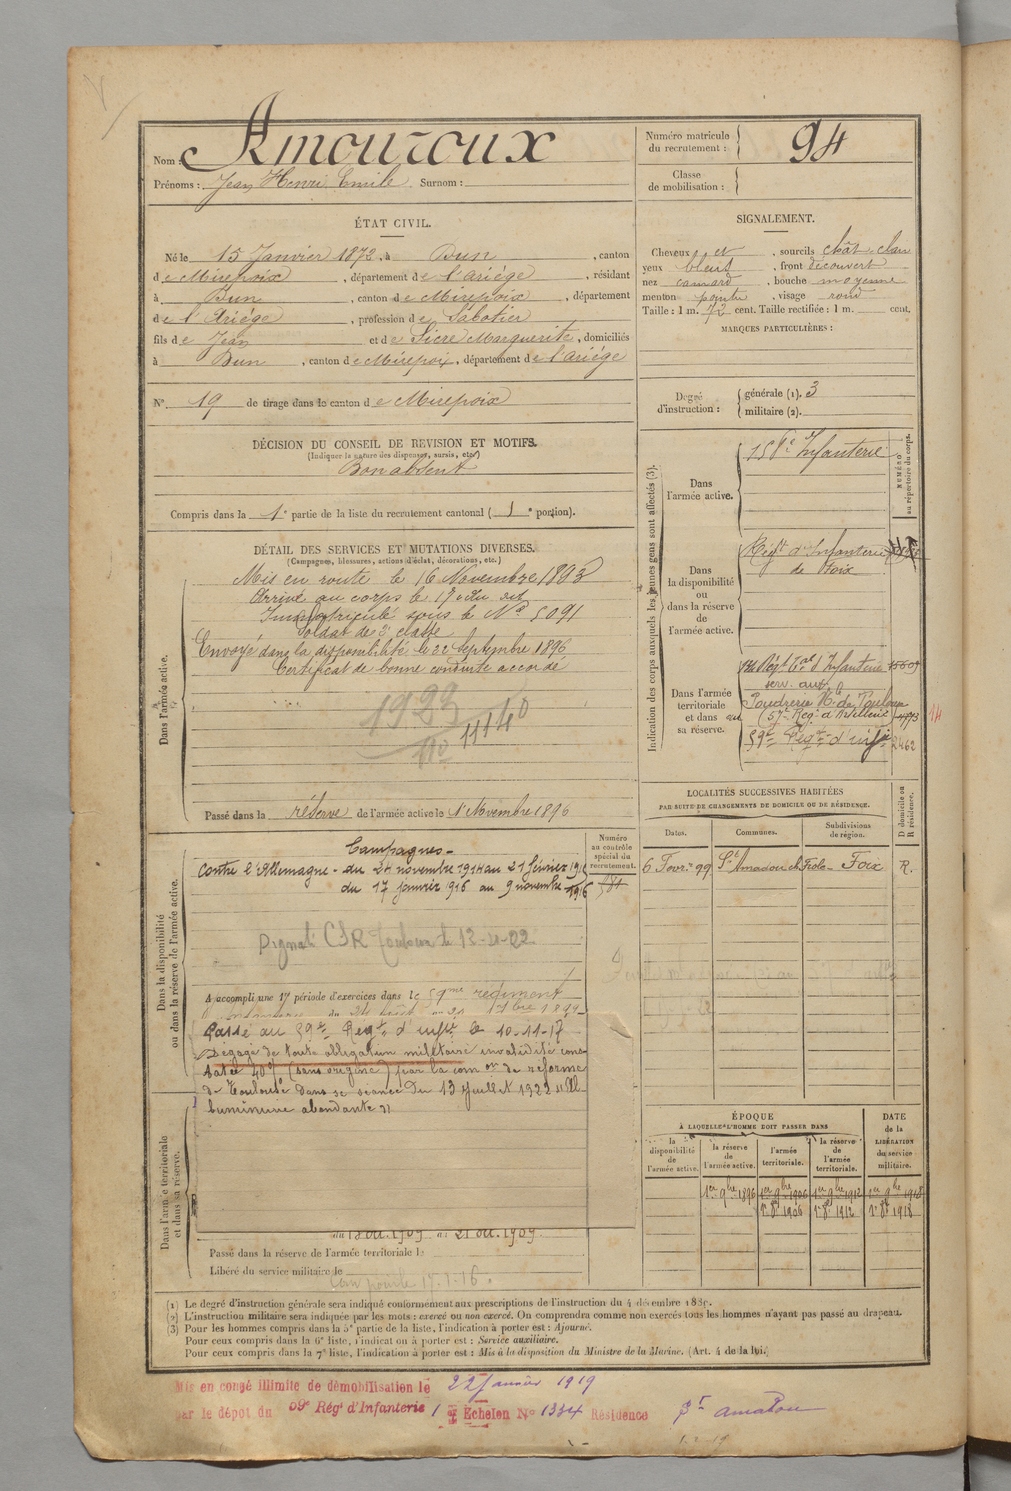 Nom : Amouroux
Prénoms : Jean Henri Emile Surnom :
Numéro matricule
du recrutement : 94
Classe
de mobilisation :
ÉTAT CIVIL.
Né le 15 Janvier 1872, à Dun, canton
de Mirepoix, département de l'Ariége, résidant
à Dun, canton de Mirepoix, département
de l'Ariége, profession de Sabotier
fils de Jean et de Sicre Marguerite, domiciliés
à Dun, canton de Mirepoix, département de l'Ariége
N° 19 de tirage dans le canton de Mirepoix
SIGNALEMENT.
Cheveux et, sourcils chât. clair
yeux bleus, front découvert
nez camard, bouche moyenne
menton pointu, visage rond
Taille : 1 m. 72 cent. Taille rectifiée : 1 m. cent.
MARQUES PARTICULIÈRES :
Degré
d'instruction :
générale (1). 3
militaire (2).
DÉCISION DU CONSEIL DE REVISION ET MOTIFS.
(Indiquer la nature des dispenses, sursis, etc.)
Bon absent
Compris dans la 1e partie de la liste du recrutement cantonal (1e portion).
DÉTAIL DES SERVICES ET MUTATIONS DIVERSES.
(Campagnes, blessures, actions d'éclat, décorations, etc.)
Dans l'armée active.
Mis en route le 16 Novembre 1893
Arrivé au corps le 17 du dit
Immatriculé sous le N° 5091
Soldat de 2e classe
Envoyé dans la disponibilité le 22 Septembre 1896
Certificat de bonne conduite accordé
1923
110
11140
Passé dans la réserve de l'armée active le 1 Novembre 1896
Indication des corps auxquels les jeunes gens sont affectés (3).
NUMÉRO
au répertoire du corps.
Dans
l'armée active.
Infanterie
Dans
la disponibilité
ou
dans la réserve
de
l'armée active.
Régt d'Infanterie
de Foix
Dans l'armée
territoriale
et dans
sa réserve.
Régt d'Infanterie
serv. aux.
Poudrerie de Toulouse
(57e Reg. d'Artillerie
59e Régt d'inf
2462
14
LOCALITÉS SUCCESSIVES HABITÉES
PAR SUITE DE CHANGEMENTS DE DOMICILE OU DE RÉSIDENCE.
D domicile ou
R résidence.
Dates.
Communes.
Subdivisions
de région.
6 Févr. 99 St Amadou Foix R.
Dans la disponibilité
ou dans la réserve de l'armée active.
Numéro
au contrôle
spécial du
recrutement.
Campagnes
Contre l'Allemagne - du 24 novembre 1914 au 21 février 1915
du 17 janvier 1916 au 9 novembre 1916
CSR Toulouse le
A accompli une 1e période d'exercices dans le 59me régiment
Passé au 59e Régt d'inftie le 10-11-17
Dégagé de toute obligation militaire invalidité cons-
tatée 40% (sans origine) par la comon de réforme
de Toulouse dans sa séance du 13 Juillet 1922 « Al-
buminurie abondante »
Dans l'armée territoriale
et dans sa réserve.
au 21 oct. 1909.
Passé dans la réserve de l'armée territoriale le
Libéré du service militaire le
17-1-16.
ÉPOQUE
À LAQUELLE L'HOMME DOIT PASSER DANS
DATE
de la
LIBÉRATION
du service
militaire.
la
disponibilité
de
l'armée active.
la réserve
de
l'armée active.
l'armée
territoriale.
la réserve
de
l'armée
territoriale.
1er 9bre 1896 1er 9bre 1906 1er 9bre 1912 1er 9bre 1918
1906 1912 1918
(1) Le degré d'instruction générale sera indiqué conformément aux prescriptions de l'instruction du 4 décembre 1889.
(2) L'instruction militaire sera indiquée par les mots : exercé ou non exercé. On comprendra comme non exercés tous les hommes n'ayant pas passé au drapeau.
(3) Pour les hommes compris dans la 5e partie de la liste, l'indication à porter est : Ajourné.
Pour ceux compris dans la 6e liste, l'indication à porter est : Service auxiliaire.
Pour ceux compris dans la 7e liste, l'indication à porter est : Mis à la disposition du Ministre de la Marine. (Art. 4 de la loi.)
Mis en congé illimité de démobilisation le 22 Janvier 1919
par le dépôt du 59e Régt d'Infanterie 1er Echelon N° 1334 Résidence St Amadou